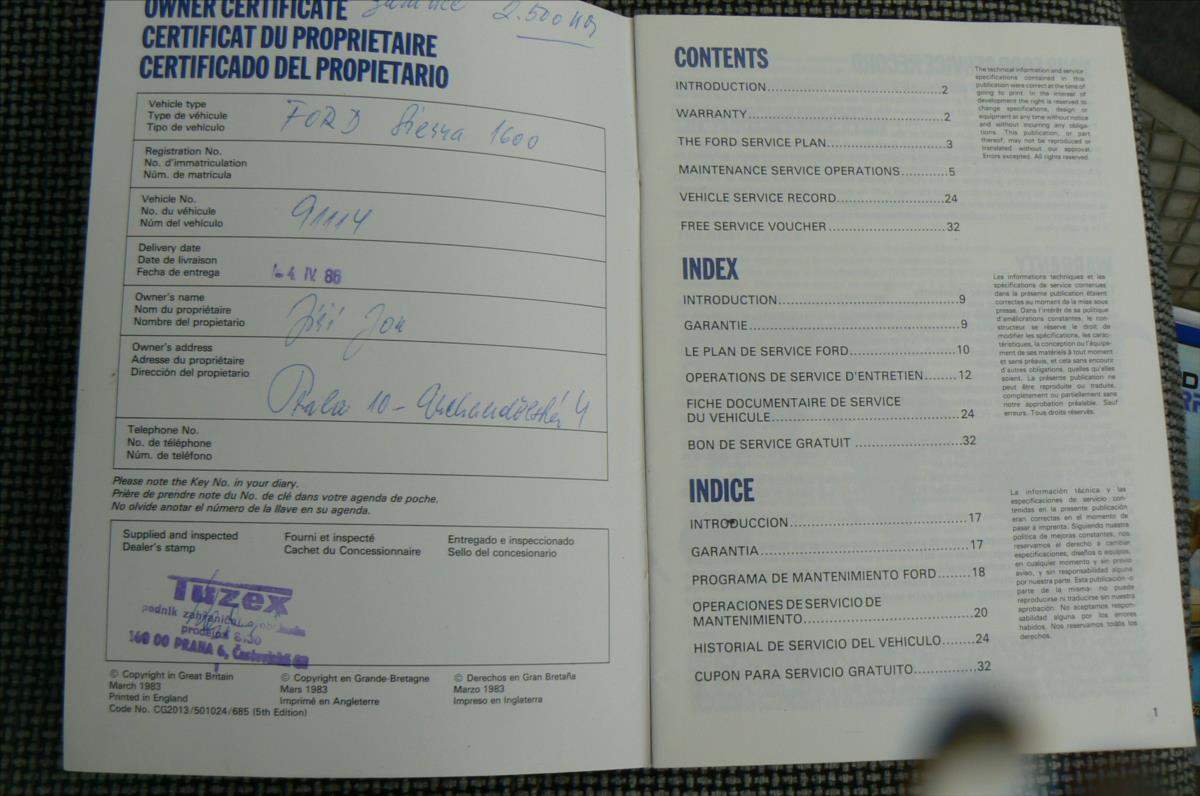 OWNER CERTIFICATE
2.500 km
CERTIFICAT DU PROPRIETAIRE
CERTIFICADO DEL PROPIETARIO
Vehicle type
Type de véhicule
Tipo de vehiculo
FORD Sierra 1600
Registration No.
No. d'immatriculation
Núm. de matrícula
Vehicle No.
No. du véhicule
Núm del vehiculo
91114
Delivery date
Date de livraison
Fecha de entrega
4. IV. 86
Owner's name
Nom du propriétaire
Nombre del propietario
Jiří
Owner's address
Adresse du propriétaire
Dirección del propietario
10 - 4
Telephone No.
No. de téléphone
Núm. de teléfono
Please note the Key No. in your diary.
Prière de prendre note du No. de clé dans votre agenda de poche.
No olvide anotar el número de la llave en su agenda.
Supplied and inspected
Dealer's stamp
Fourni et inspecté
Cachet du Concessionnaire
Entregado e inspeccionado
Sello del concesionario
Tuzex
podnik
prodejna
160 00 PRAHA 6,
© Copyright in Great Britain
March 1983
Printed in England
Code No. CG2013/501024/685 (5th Edition)
© Copyright en Grande-Bretagne
Mars 1983
Imprimé en Angleterre
© Derechos en Gran Bretaña
Marzo 1983
Impreso en Inglaterra
CONTENTS
INTRODUCTION 2
WARRANTY 2
THE FORD SERVICE PLAN 3
MAINTENANCE SERVICE OPERATIONS 5
VEHICLE SERVICE RECORD 24
FREE SERVICE VOUCHER 32
The technical information and service
specifications contained in this
publication were correct at the time of
going to print. In the interest of
development the right is reserved to
change specifications, design or
equipment at any time without notice
and without incurring any obliga-
tions. This publication, or part
thereof, may not be reproduced or
translated without our approval.
Errors excepted. All rights reserved.
INDEX
INTRODUCTION 9
GARANTIE 9
LE PLAN DE SERVICE FORD 10
OPERATIONS DE SERVICE D'ENTRETIEN 12
FICHE DOCUMENTAIRE DE SERVICE
DU VEHICULE 24
BON DE SERVICE GRATUIT 32
Les informations techniques et les
spécifications de service contenues
dans la présente publication étaient
correctes au moment de la mise sous
presse. Dans l'intérêt de sa politique
d'améliorations constantes, le con-
structeur se réserve le droit de
modifier les spécifications, les carac-
téristiques, la conception ou l'équipe-
ment de ses matériels à tout moment
et sans préavis, et cela sans encourir
d'autres obligations, quelles qu'elles
soient. La présente publication ne
peut être reproduite ou traduite,
complètement ou partiellement sans
notre approbation préalable. Sauf
erreurs. Tous droits réservés.
INDICE
INTRODUCCION 17
GARANTIA 17
PROGRAMA DE MANTENIMIENTO FORD 18
OPERACIONES DE SERVICIO DE
MANTENIMIENTO 20
HISTORIAL DE SERVICIO DEL VEHICULO 24
CUPON PARA SERVICIO GRATUITO 32
La información técnica y las
especificaciones de servicio con-
tenidas en la presente publicación
eran correctas en el momento de
pasar a imprenta. Siguiendo nuestra
política de mejoras constantes, nos
reservamos el derecho a cambiar
especificaciones, diseños o equipos,
en cualquier momento y sin previo
aviso, y sin responsabilidad alguna
por nuestra parte. Esta publicación -o
parte de la misma- no puede
reproducirse ni traducirse sin nuestra
aprobación. No aceptamos respon-
sabilidad alguna por los errores
habidos. Nos reservamos todos los
derechos.
1